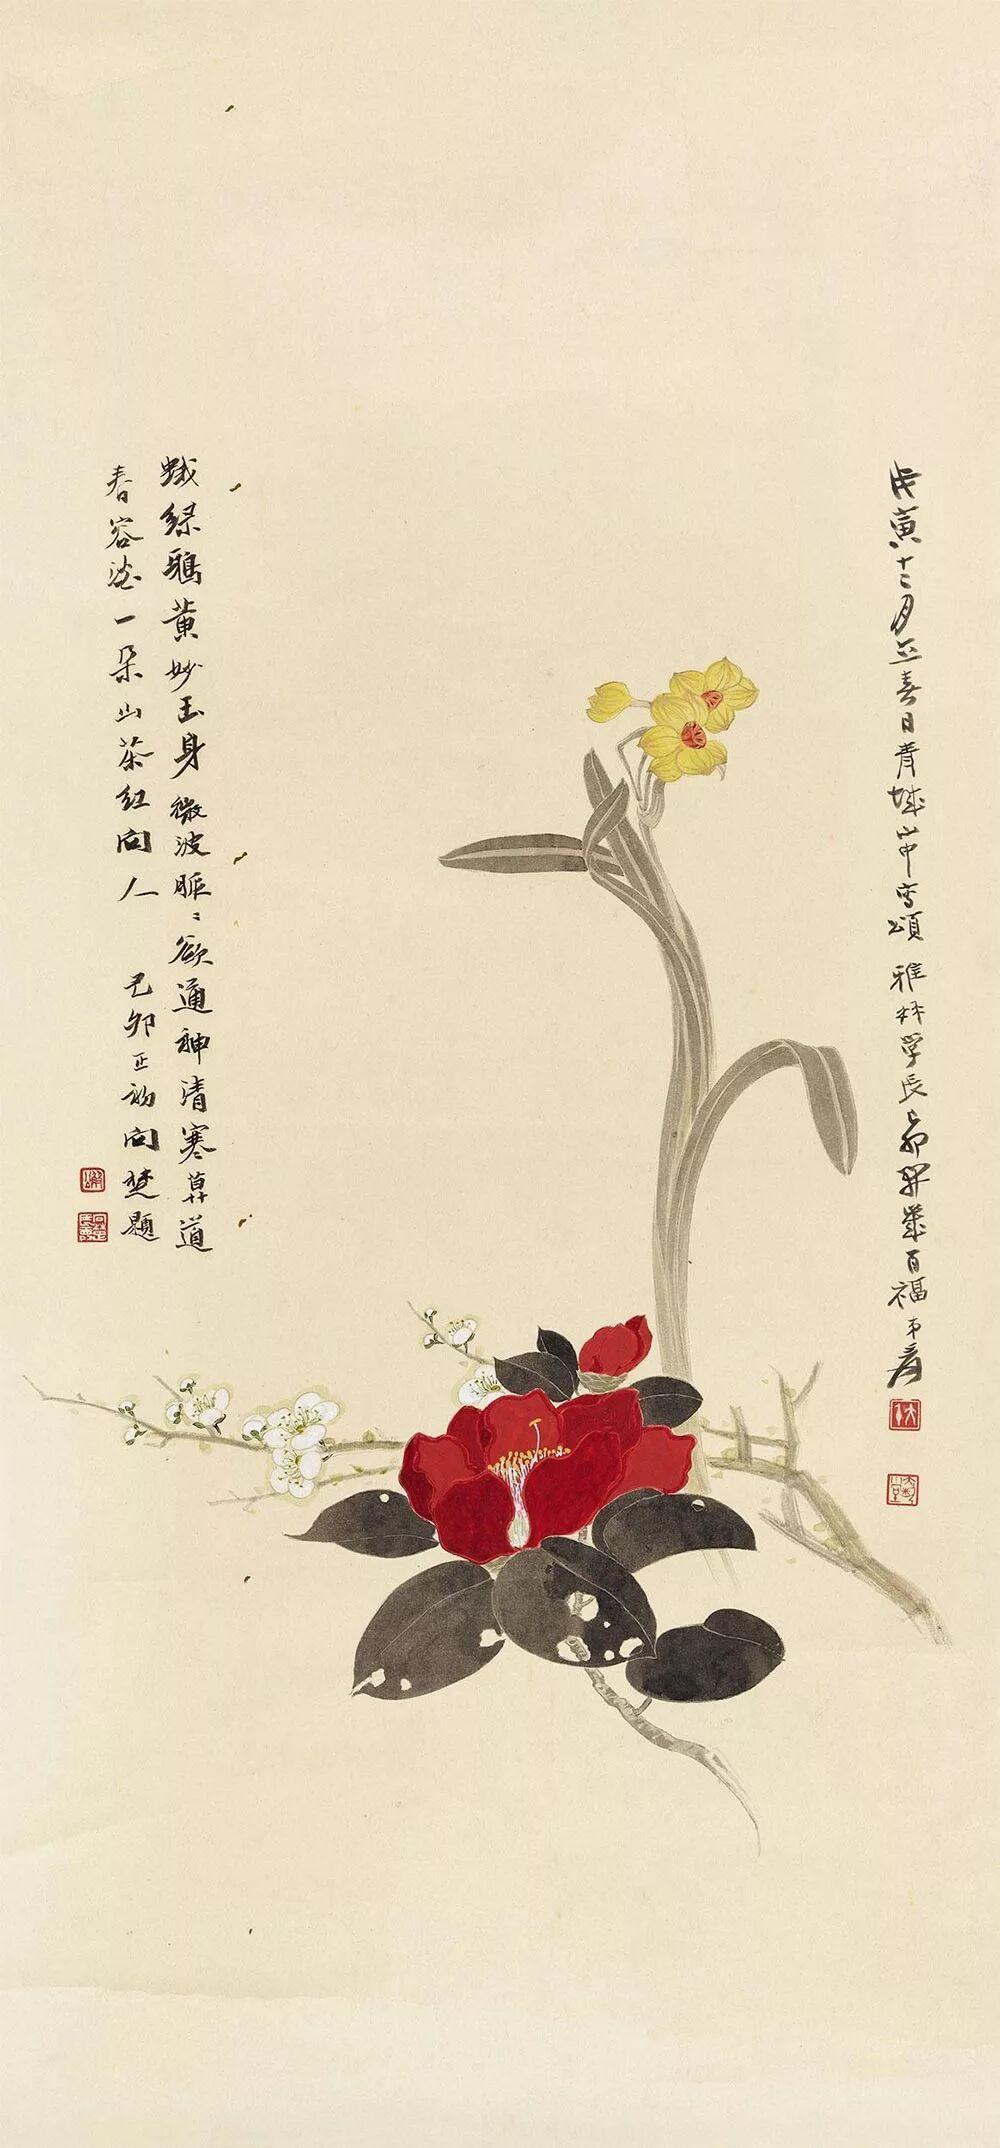 戊寅十二月立春日青城山中寫頌 雅林學長己卯開歲百福弟爰
蛾綠鵶黃妙玉身微波脈〻欲通神清寒莫道
春容澹一朵山茶紅向人 己卯正初向楚題